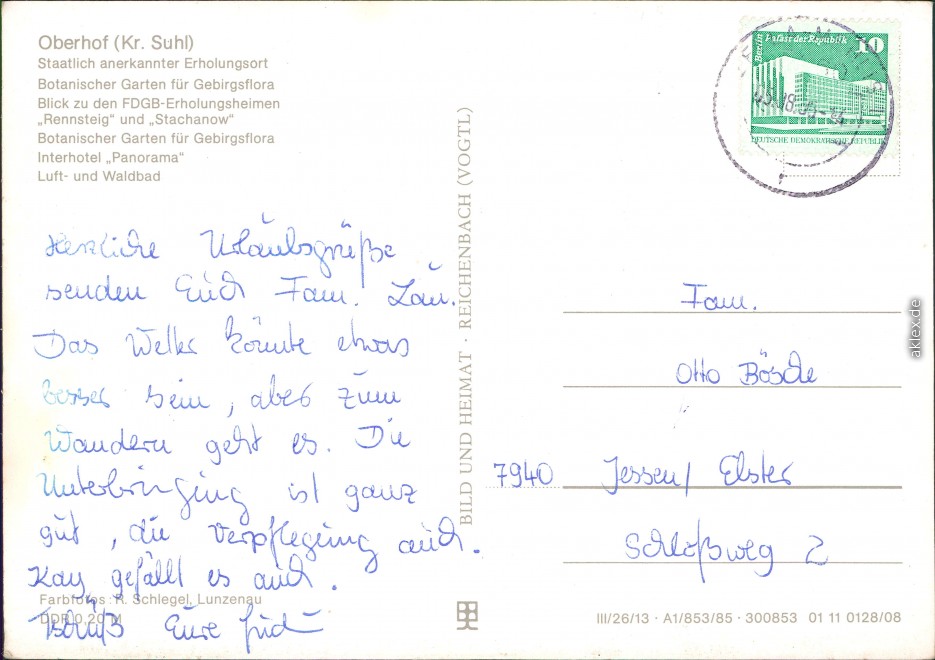 Oberhof (Kr. Suhl)
Staatlich anerkannter Erholungsort
Botanischer Garten für Gebirgsflora
Blick zu den FDGB-Erholungsheimen
„Rennsteig" und „Stachanow"
Botanischer Garten für Gebirgsflora
Interhotel „Panorama"
Luft- und Waldbad
Herzliche Urlaubsgrüße
senden Euch Fam. Lau.
Das Wetter könnte etwas
besser sein, aber zum
Wandern geht es. Die
Unterbringung ist ganz
gut, die Verpflegung auch.
Kay gefällt es auch.
Farbfotos: R. Schlegel, Lunzenau
DDR 0,20 M
Tschüß Eure
BILD UND HEIMAT · REICHENBACH (VOGTL)
Berlin Palast der Republik 10
DEUTSCHE DEMOKRATISCHE REPUBLIK
Fam.
Otto Bösche
7940 Jessen/ Elster
Schloßweg 2
III/26/13 · A1/853/85 · 300853 01 11 0128/08
aklex.de